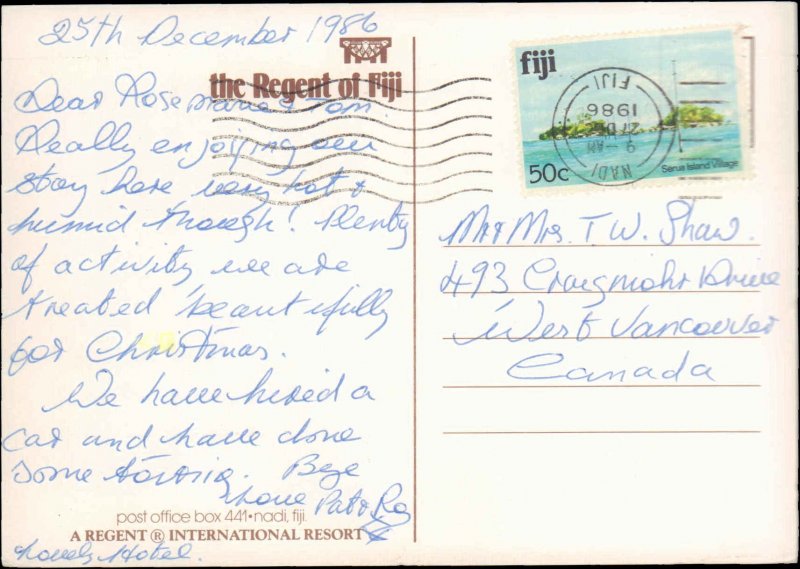 25th December 1986
the Regent of Fiji
Dear Rosemarie & Tom.
Really enjoying our
stay here very hot &
humid though! Plenty
of activity, we are
treated beautifully
for Christmas.
We have hired a
car and have done
some touring. Bye
Love Pat & Roy
post office box 441•nadi, fiji.
A REGENT ® INTERNATIONAL RESORT
Lovely Hotel.
fiji
50c
Serua Island Village
NADI
9 - AM
27 DE
1986
FIJI
Mr & Mrs. T. W. Shaw.
493 Craigmohr Drive
West Vancouver
Canada